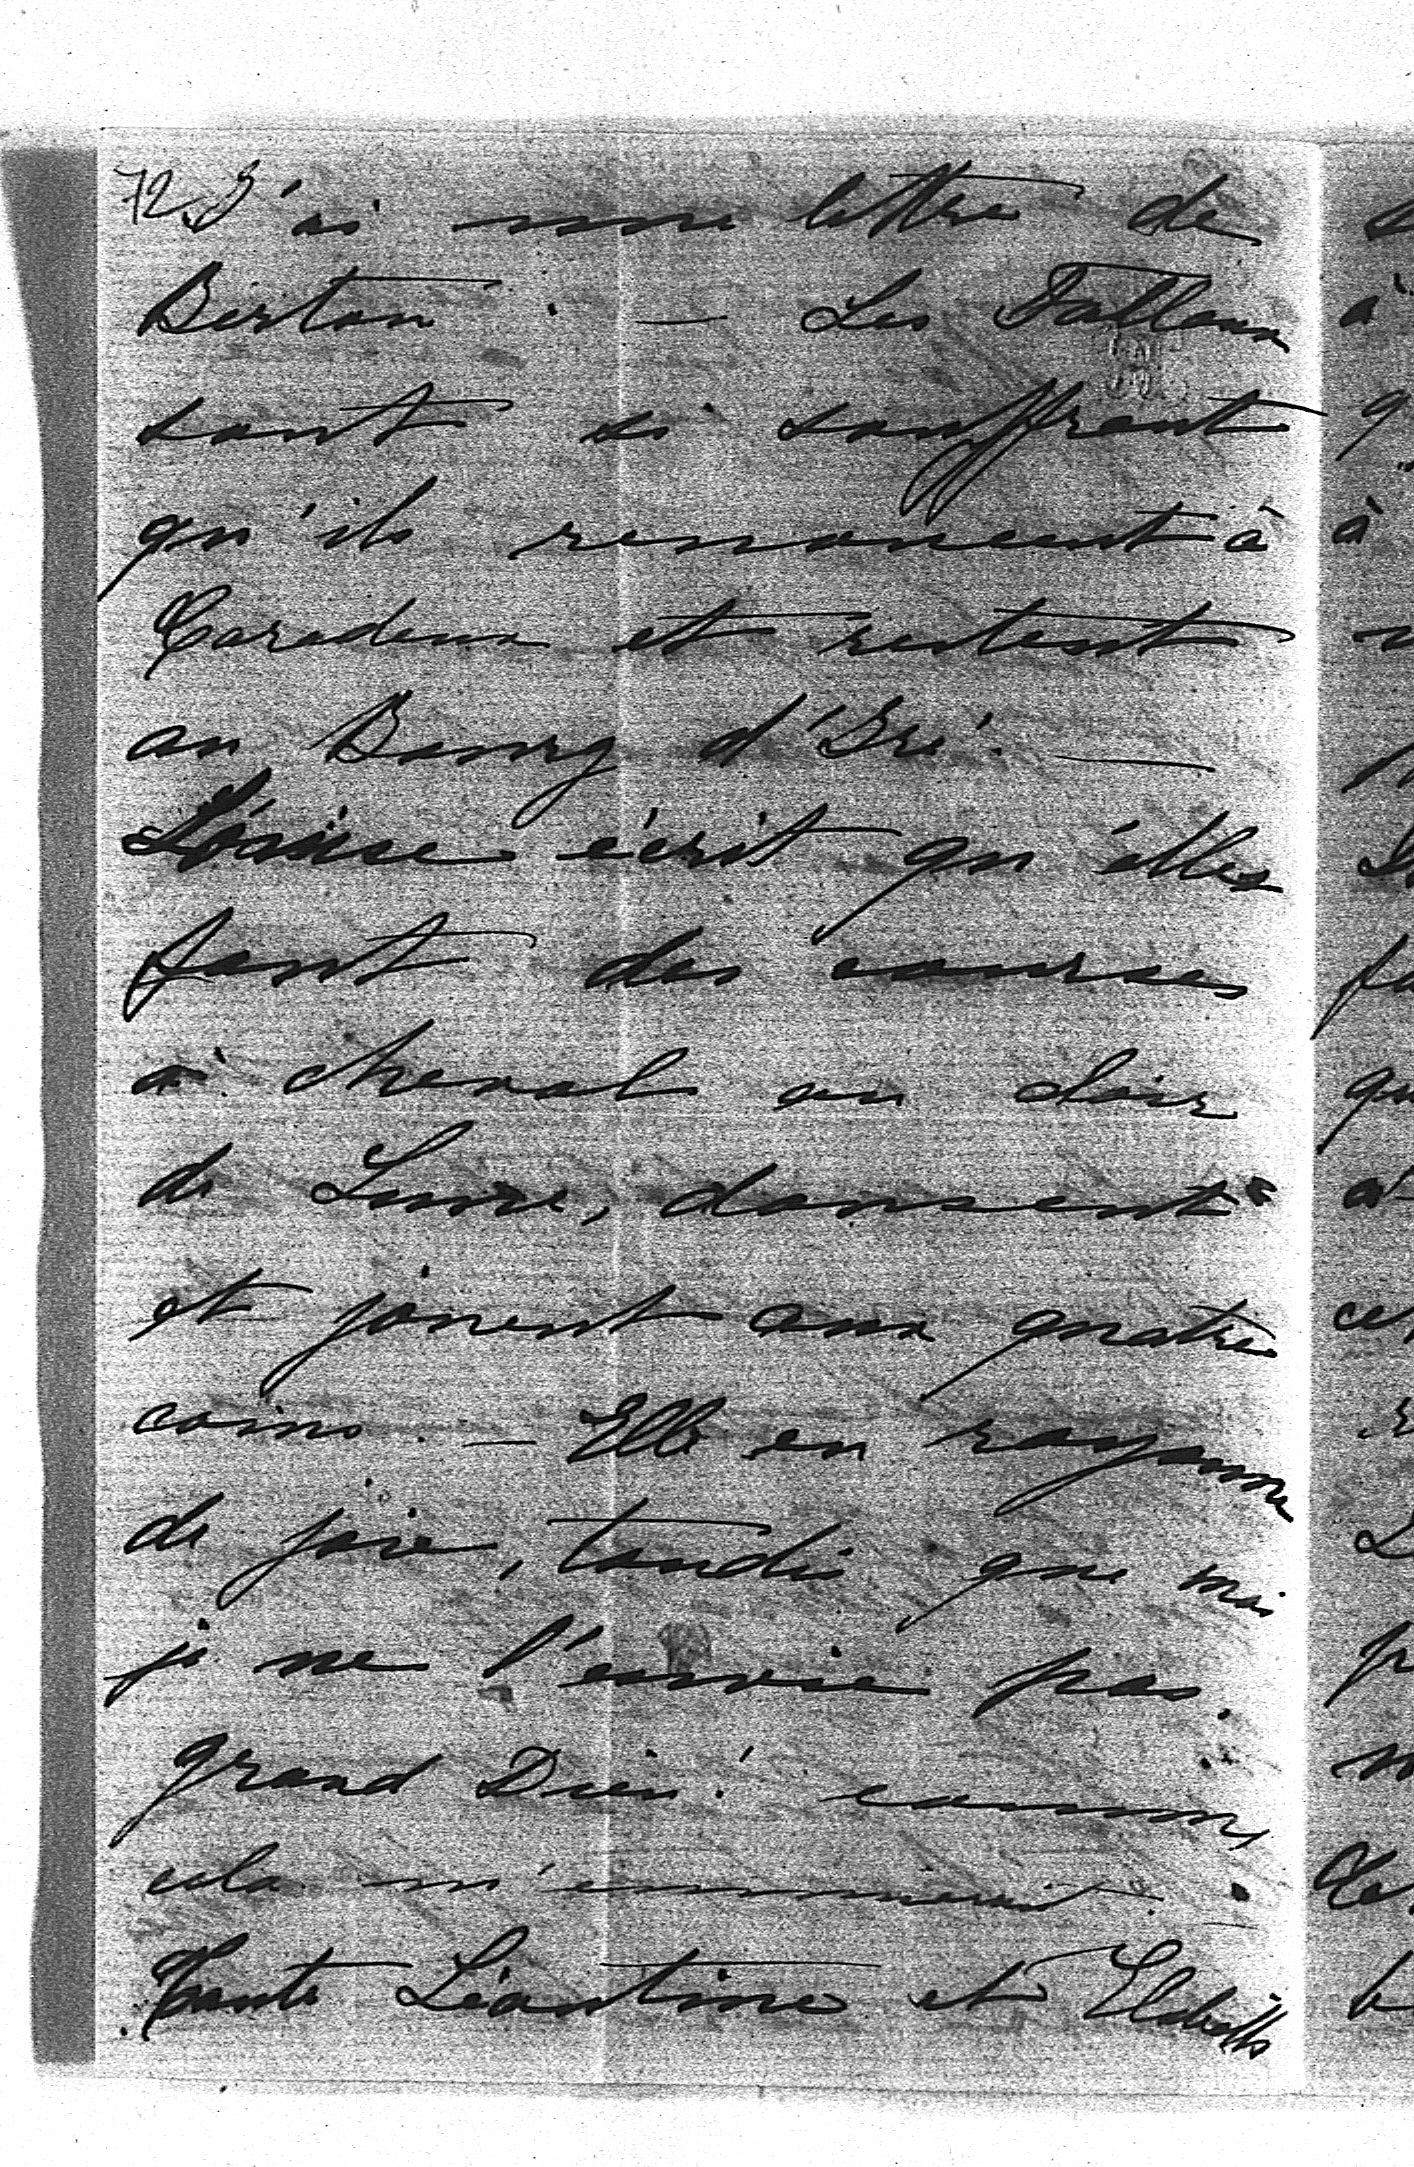 72. J'ai une lettre de
Berton. — Les Falloux
sont si souffrant
qu'ils renoncent à
Caradeuc et restent
au Bourg d'Iré. —
Louise écrit qu'elles
font des courses
à cheval au clair
de Lune, dansent
et jouent aux quatre
coins. — Elle en rayonne
de joie, tandis que moi
je ne l'envie pas.
grand Dieu! comme
cela m'ennuierait.
Tante Léontine et